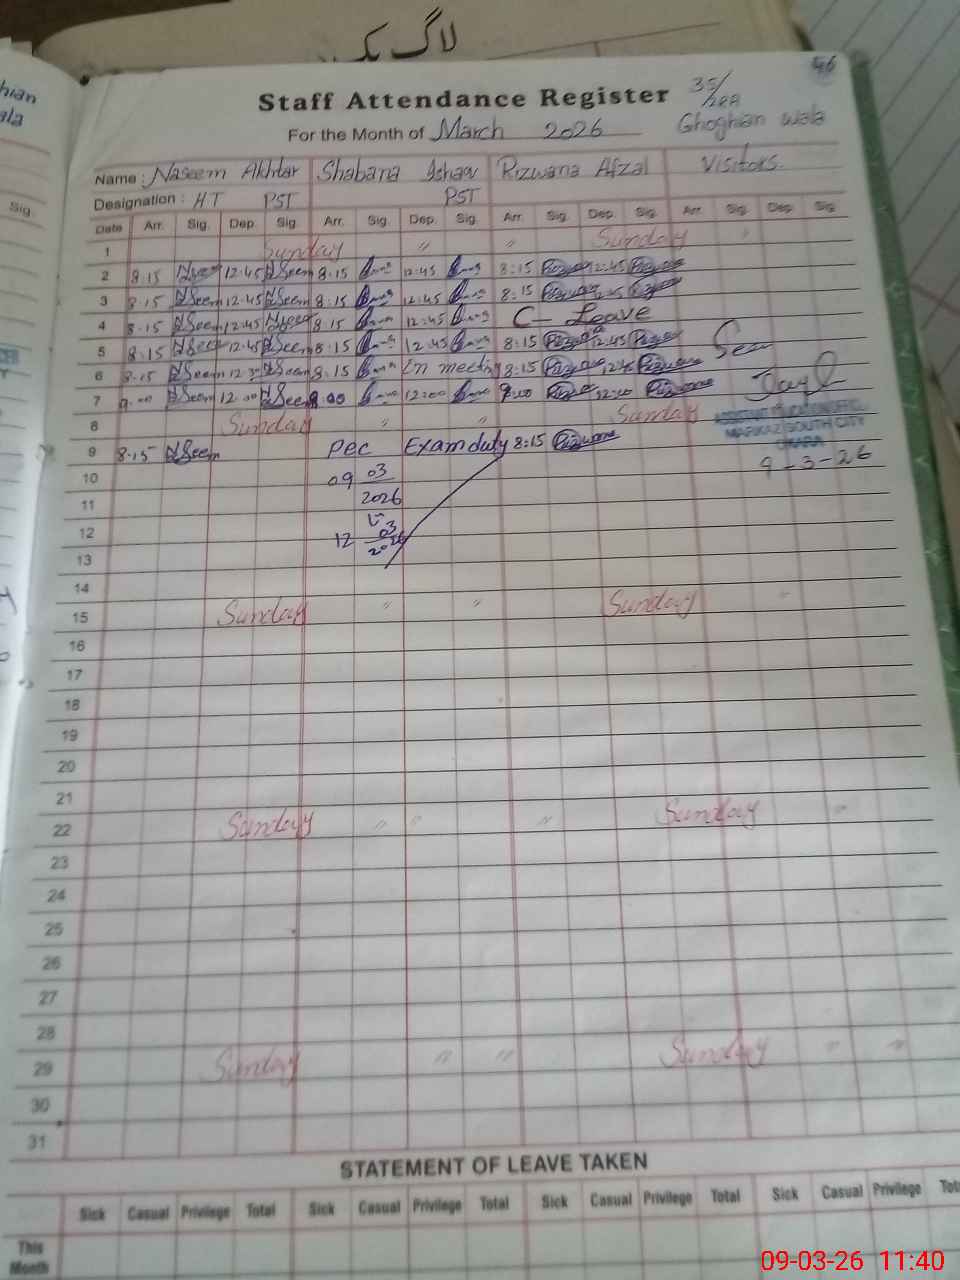 لاگ بک
46
Staff Attendance Register 35/2RA
For the Month of March 2026 Ghoghian wala
Name : Naseem Akhtar Shabana Ishaq Rizwana Afzal Visitors
Designation : HT PST PST
Date Arr. Sig. Dep. Sig. Arr. Sig. Dep. Sig. Arr. Sig. Dep. Sig. Arr. Sig. Dep. Sig.
1 Sunday " " Sunday "
2 8.15 NSeem 12.45 NSeem 8.15 12.45 8:15 Rizwana 12:45 Rizwana
3 8.15 NSeem 12.45 NSeem 8.15 12.45 8:15 Rizwana Rizwana
4 8.15 NSeem 12.45 NSeem 8.15 12.45 C- Leave
5 8.15 NSeem 12.45 NSeem 8.15 12.45 8:15 Rizwana 12.45 Rizwana
6 8.15 NSeem NSeem 8.15 In meeting 8:15 Rizwana Rizwana
7 9.00 NSeem 12.00 NSeem 9.00 12:00 9:00 Rizwana 12:00 Rizwana
8 Sunday " " Sunday
ASSISTANT EDUCATION OFFICER
MARKAZ SOUTH CITY
OKARA
9 8.15 NSeem PEC Exam duty 8:15 Rizwana
9-3-26
10 09 03
11 2026
12 12 03
2026
13
14
15 Sunday " " Sunday "
16
17
18
19
20
21
22 Sunday " " " Sunday "
23
24
25
26
27
28
29 Sunday " " Sunday " "
30
31
STATEMENT OF LEAVE TAKEN
Sick Casual Privilege Total Sick Casual Privilege Total Sick Casual Privilege Total Sick Casual Privilege
This
Month
09-03-26 11:40